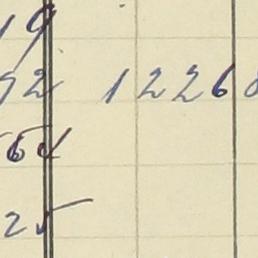 19
92 12268
64
25